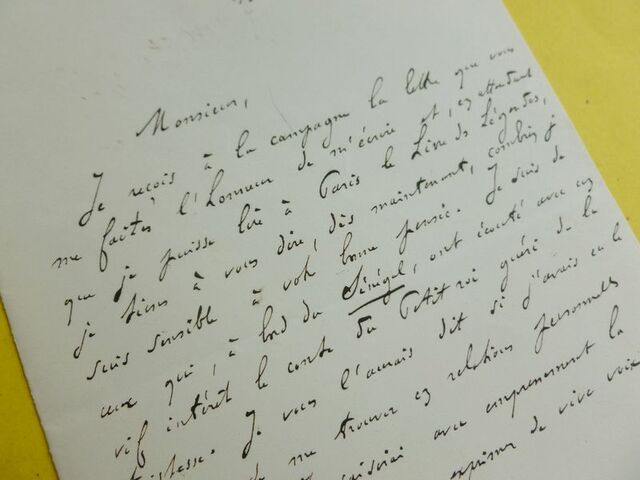 Monsieur,
Je reçois à la campagne la lettre que vous
me faites l'honneur de m'écrire et, en attendant
que je puisse lire à Paris le Livre des Légendes,
je tiens à vous dire, dès maintenant, combien je
suis sensible à votre bonne pensée. Je suis de
ceux qui, à bord du Sénégal, ont écouté avec un
vif intérêt le conte du Petit roi guéri de la
tristesse. Je vous l'aurais dit si j'avais eu le
de me trouver en relations personnelles
avec empressement la
exprimer de vive voix